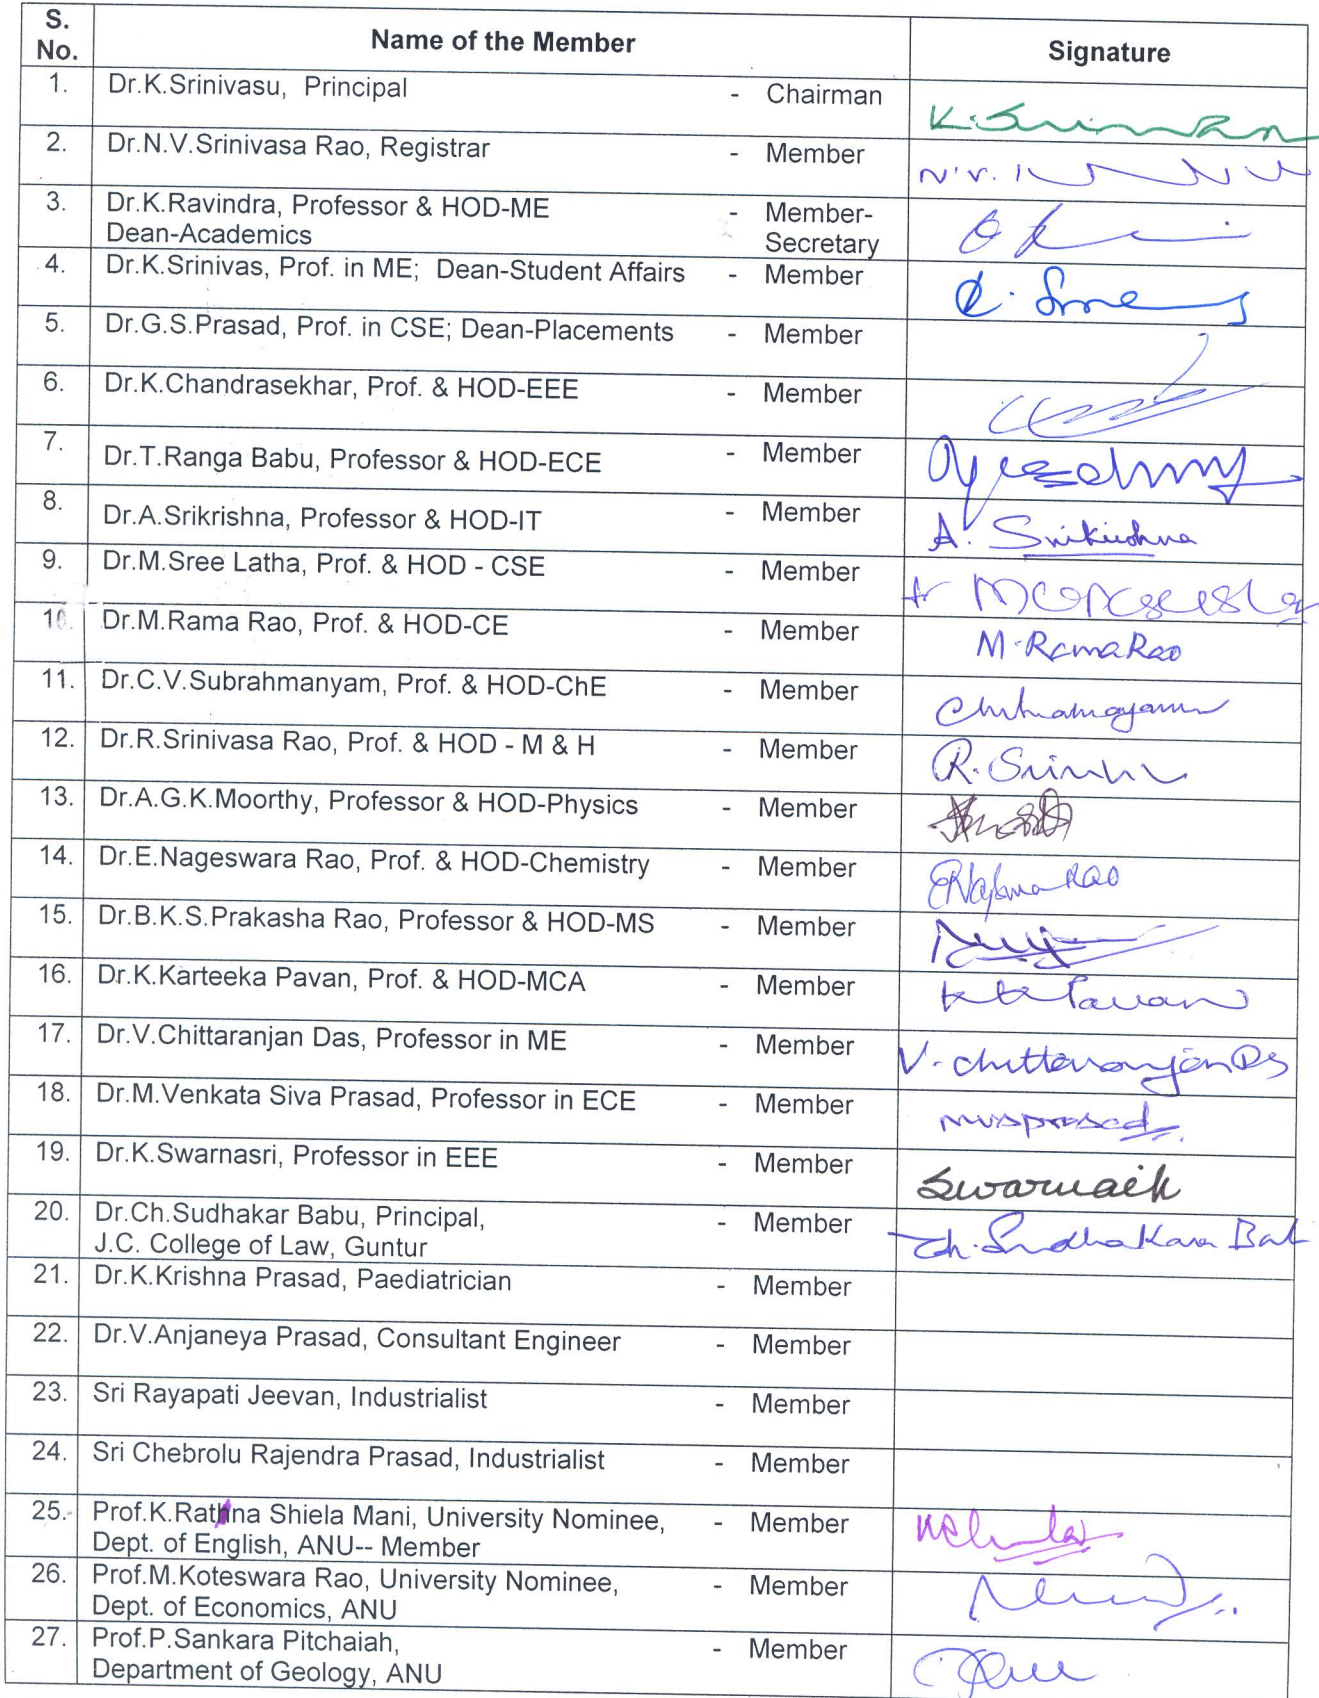 S. No. Name of the Member Signature
1. Dr.K.Srinivasu, Principal - Chairman
2. Dr.N.V.Srinivasa Rao, Registrar - Member
N.V.
3. Dr.K.Ravindra, Professor & HOD-ME - Member-
Dean-Academics Secretary
4. Dr.K.Srinivas, Prof. in ME; Dean-Student Affairs - Member
5. Dr.G.S.Prasad, Prof. in CSE; Dean-Placements - Member
6. Dr.K.Chandrasekhar, Prof. & HOD-EEE - Member
7. Dr.T.Ranga Babu, Professor & HOD-ECE - Member
8. Dr.A.Srikrishna, Professor & HOD-IT - Member A. Srikrishna
9. Dr.M.Sree Latha, Prof. & HOD - CSE - Member
10. Dr.M.Rama Rao, Prof. & HOD-CE - Member M.RamaRao
11. Dr.C.V.Subrahmanyam, Prof. & HOD-ChE - Member
12. Dr.R.Srinivasa Rao, Prof. & HOD - M & H - Member
13. Dr.A.G.K.Moorthy, Professor & HOD-Physics - Member
14. Dr.E.Nageswara Rao, Prof. & HOD-Chemistry - Member
15. Dr.B.K.S.Prakasha Rao, Professor & HOD-MS - Member
16. Dr.K.Karteeka Pavan, Prof. & HOD-MCA - Member
17. Dr.V.Chittaranjan Das, Professor in ME - Member V. Chittaranjan Das
18. Dr.M.Venkata Siva Prasad, Professor in ECE - Member mvsprasad
19. Dr.K.Swarnasri, Professor in EEE - Member
20. Dr.Ch.Sudhakar Babu, Principal, - Member
J.C. College of Law, Guntur
21. Dr.K.Krishna Prasad, Paediatrician - Member
22. Dr.V.Anjaneya Prasad, Consultant Engineer - Member
23. Sri Rayapati Jeevan, Industrialist - Member
24. Sri Chebrolu Rajendra Prasad, Industrialist - Member
25. Prof.K.Rathna Shiela Mani, University Nominee, - Member
Dept. of English, ANU-- Member
26. Prof.M.Koteswara Rao, University Nominee, - Member
Dept. of Economics, ANU
27. Prof.P.Sankara Pitchaiah, - Member
Department of Geology, ANU